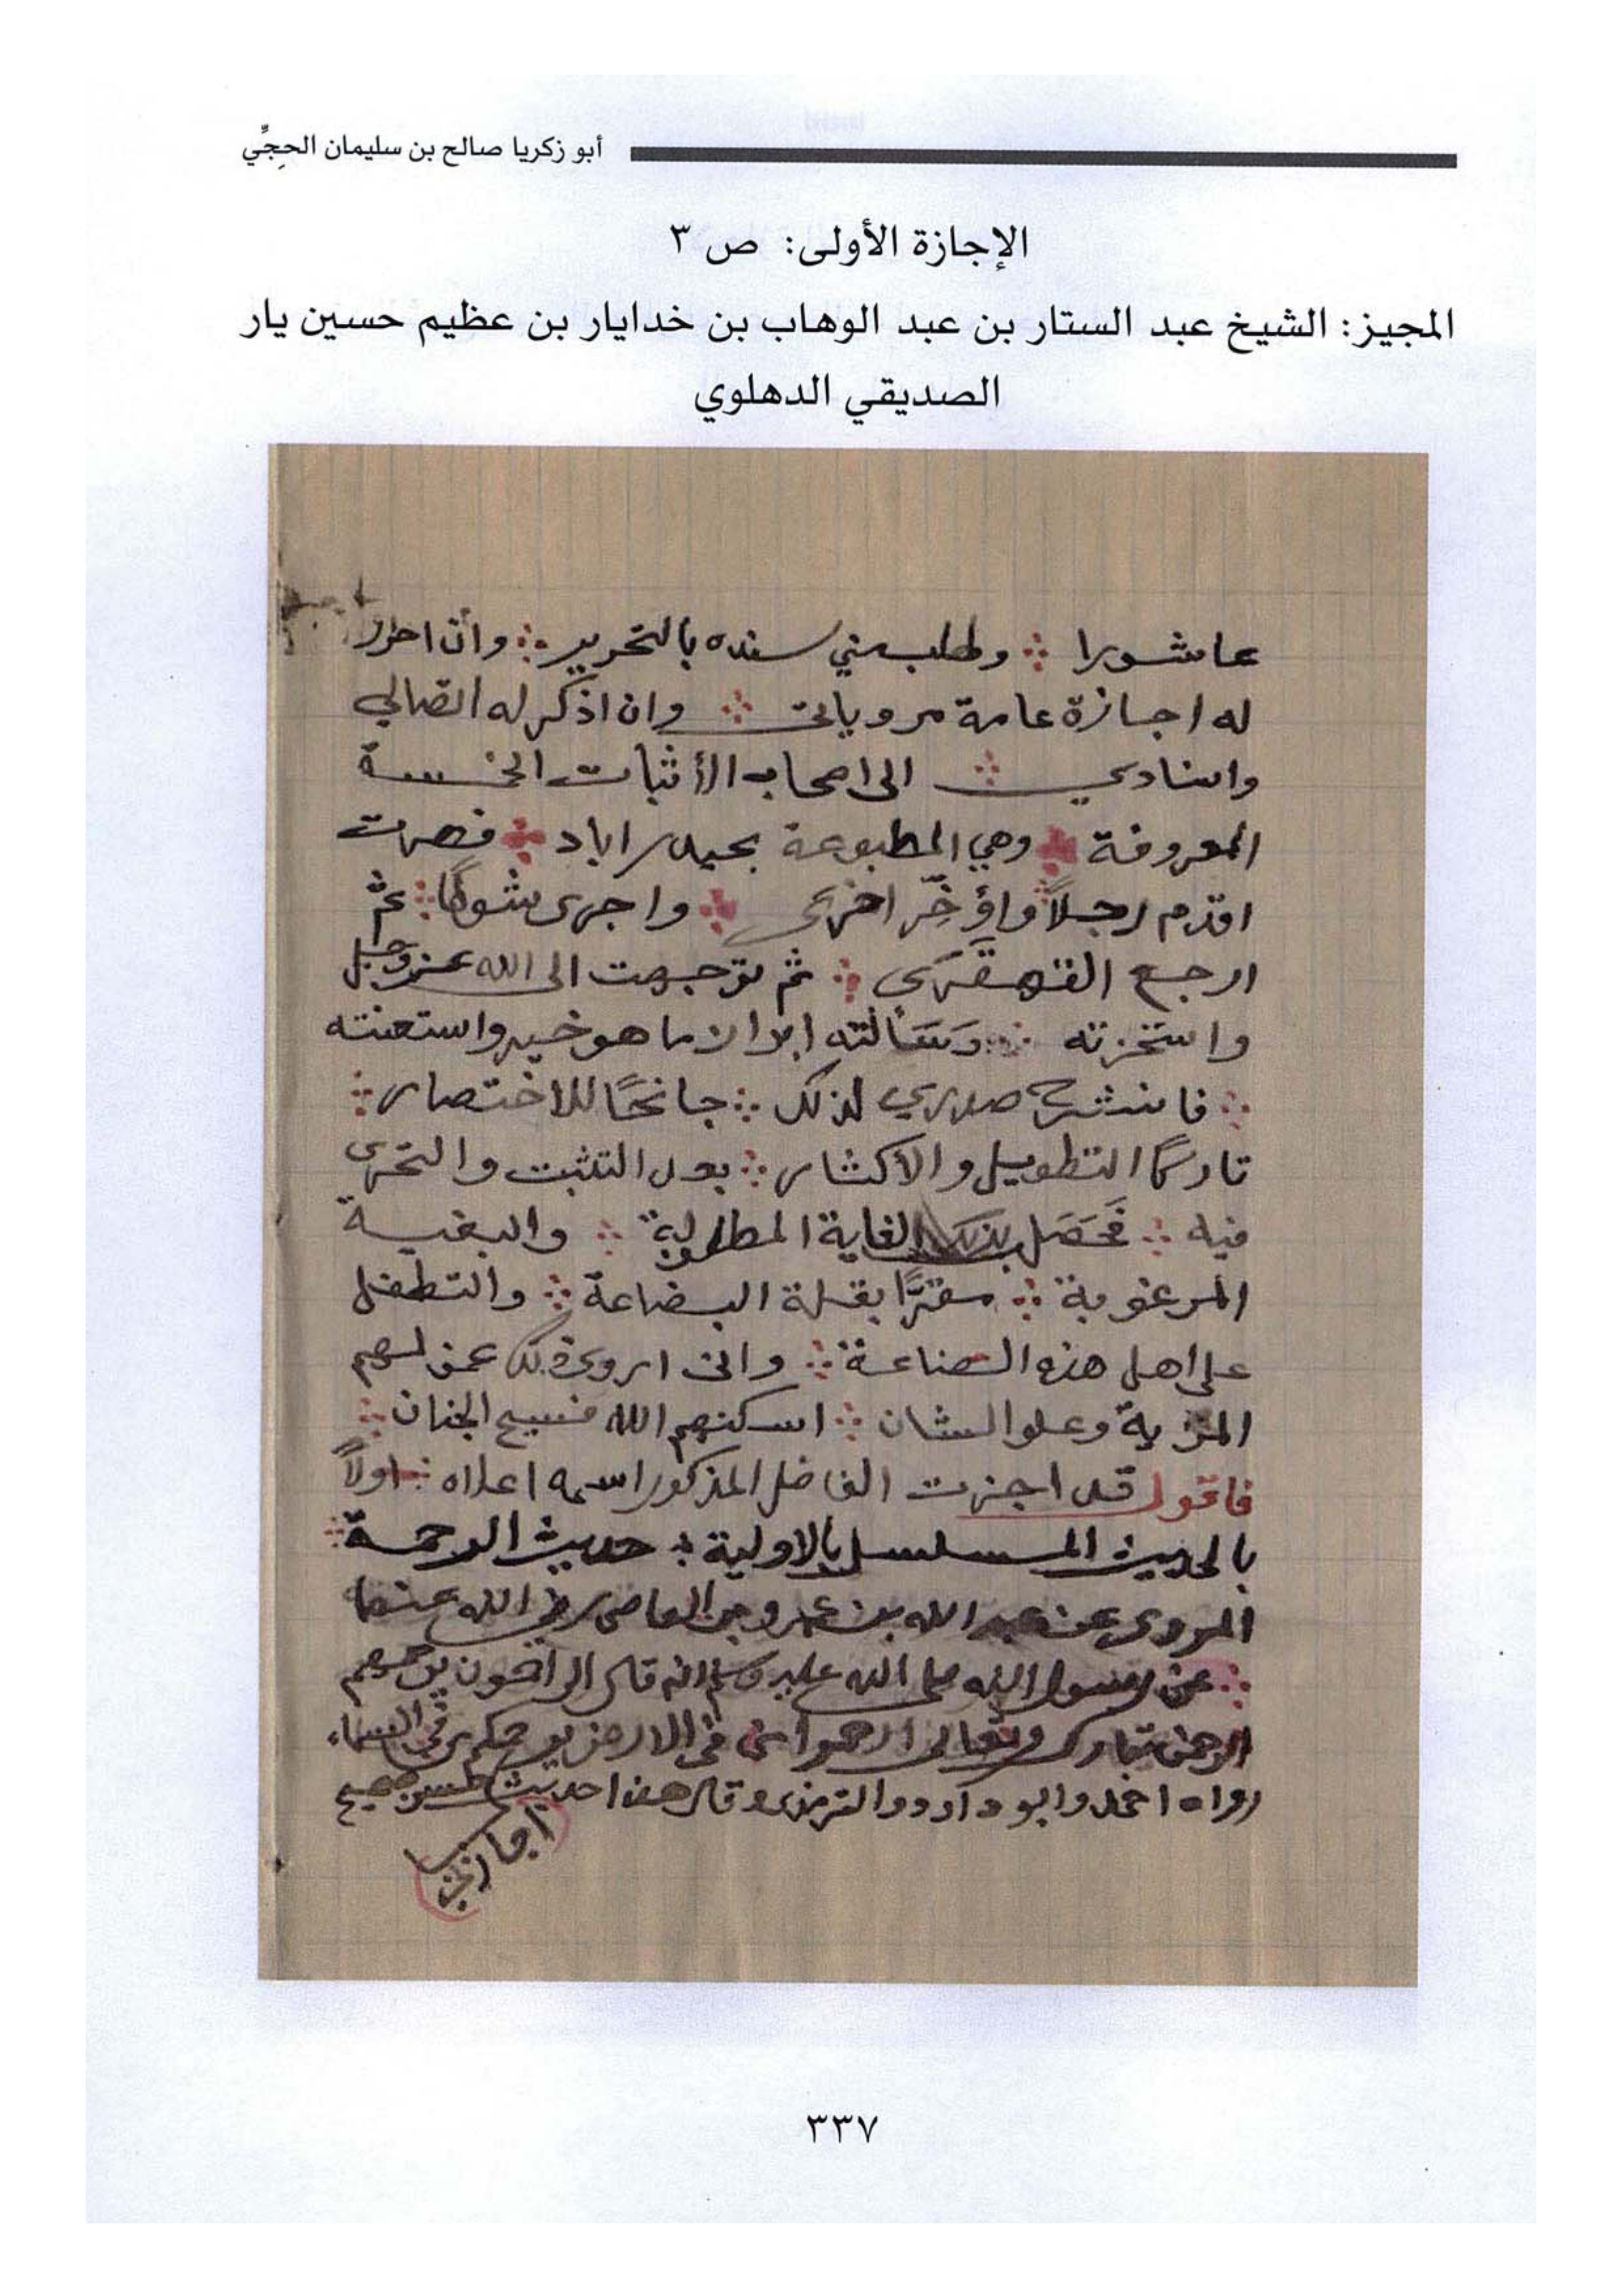 أبو زكريا صالح بن سليمان الحِجِّي
الإجازة الأولى: ص ٣
المجيز: الشيخ عبد الستار بن عبد الوهاب بن خدايار بن عظيم حسين يار
الصديقي الدهلوي
عاشورا ∴ وطلب مني سنده بالتحرير ∴ وأن احرر
له اجازة عامة مروياتي ∴ وان اذكر له اتصالي
واسنادي ∴ الى اصحاب الأثبات الخمسة
المعروفة ∴ وهي المطبوعة بحيدراباد ∴ فصرت
اقدم رجلاً واؤخّر اخرى ∴ واجري شوطًا ∴ ثم
ارجع القهقرى ∴ ثم توجهت الى الله عز وجل
واستخرته ∴ وَسَألته ان لا ما هو خير واستعنته
∴ فانشرح صدري لذلك ∴ جانحًا للاختصار ∴
تاركًا التطويل والاكثار ∴ بعد التثبت والتحرى
فيه ∴ فَحَصَل بذلك الغاية المطلوبة ∴ والبغية
المرغوبة ∴ مقرًّا بقلة البضاعة ∴ والتطفل
على اهل هذه الصناعة ∴ واني اروى ذلك عمن لهم
المزية وعلو الشان ∴ اسكنهم الله فسيح الجنان ∴
فاقول قد اجزت الفاضل المذكور اسمه اعلاه ∴ اولاً
بالحديث المسلسل بالاولية ∴ حديث الرحمة ∴
المروى عن عبد الله بن عمرو بن العاص رضي الله عنهما
∴ عن رسول الله صلى الله عليه وسلم انه قال الراحمون يرحمهم
الرحمن تبارك وتعالى ارحموا من في الارض يرحمكم من في السماء
رواه احمد وابو داود والترمذى وقال هذا حديث حسن صحيح
٣٣٧